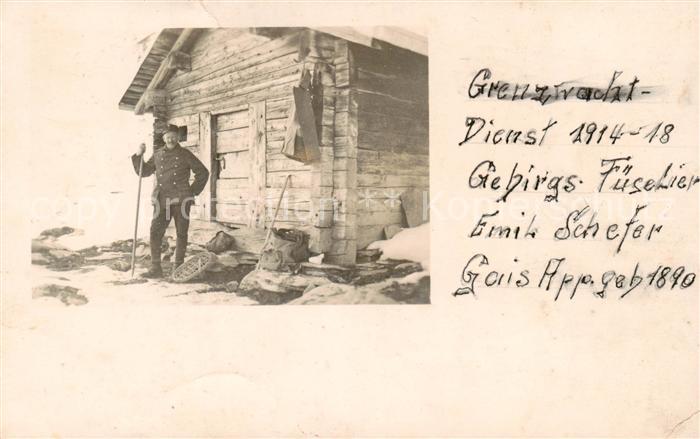 Grenzwacht-
Dienst 1914-18
Gebirgs. Füselier
Emil Schefer
Gais App. geb 1890
copy protection ** Kopierschutz